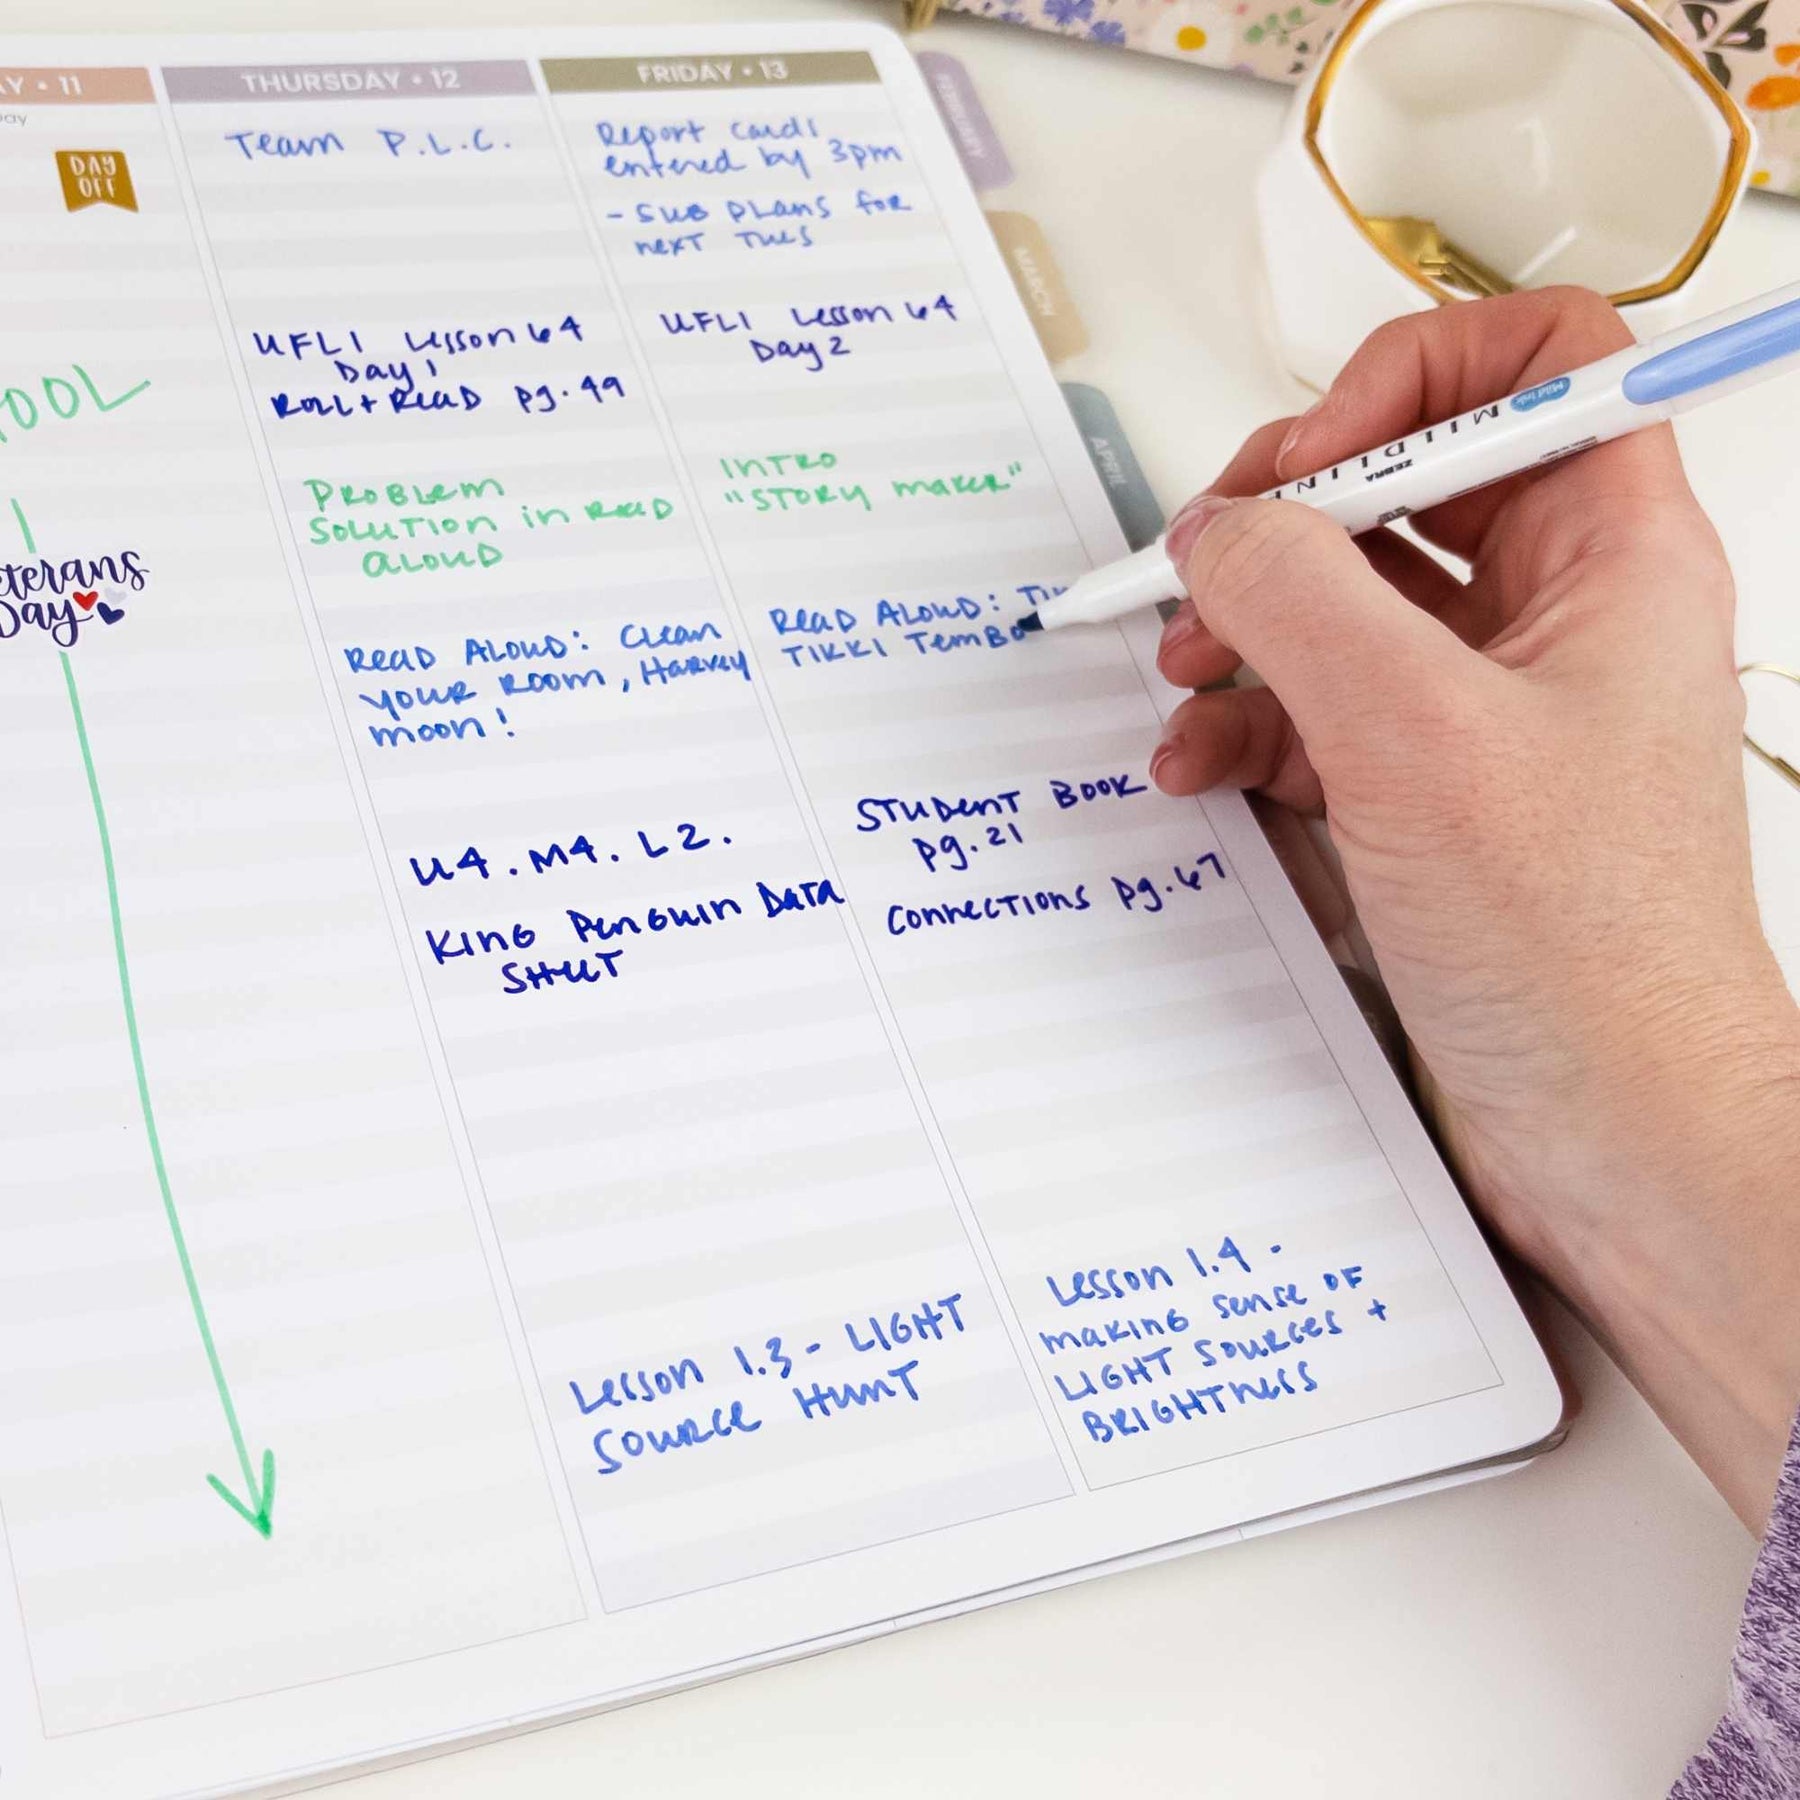 AY • 11
THURSDAY • 12
FRIDAY • 13
DAY
OFF
OOL
eterans
Day
Team P.L.C.
UFLI Lesson 64
Day 1
Roll + Read pg. 49
Problem
Solution in Read
Aloud
Read Aloud: Clean
your room, Harvey
moon!
U4. M4. L2.
King Penguin Data
Sheet
Lesson 1.3 - Light
Source Hunt
Report Cards
entered by 3pm
- Sub plans for
next Tues
UFLI Lesson 64
Day 2
Intro
"Story maker"
Read Aloud: Tik
Tikki Tembo
Student Book
pg. 21
Connections pg. 67
Lesson 1.4 -
making sense of
light sources +
Brightness
FEBRUARY
MARCH
APRIL
ZEBRA
MILDLINE
Mild Ink